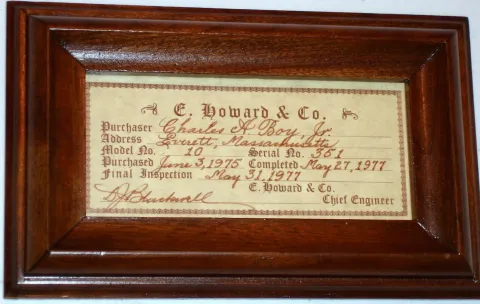 E. Howard & Co.
Purchaser Charles A Boy, Jr.
Address Everett, Massachusetts
Model No. 10 Serial No. 351
Purchased June 3, 1975 Completed May 27, 1977
Final Inspection May 31, 1977
E. Howard & Co.
Chief Engineer